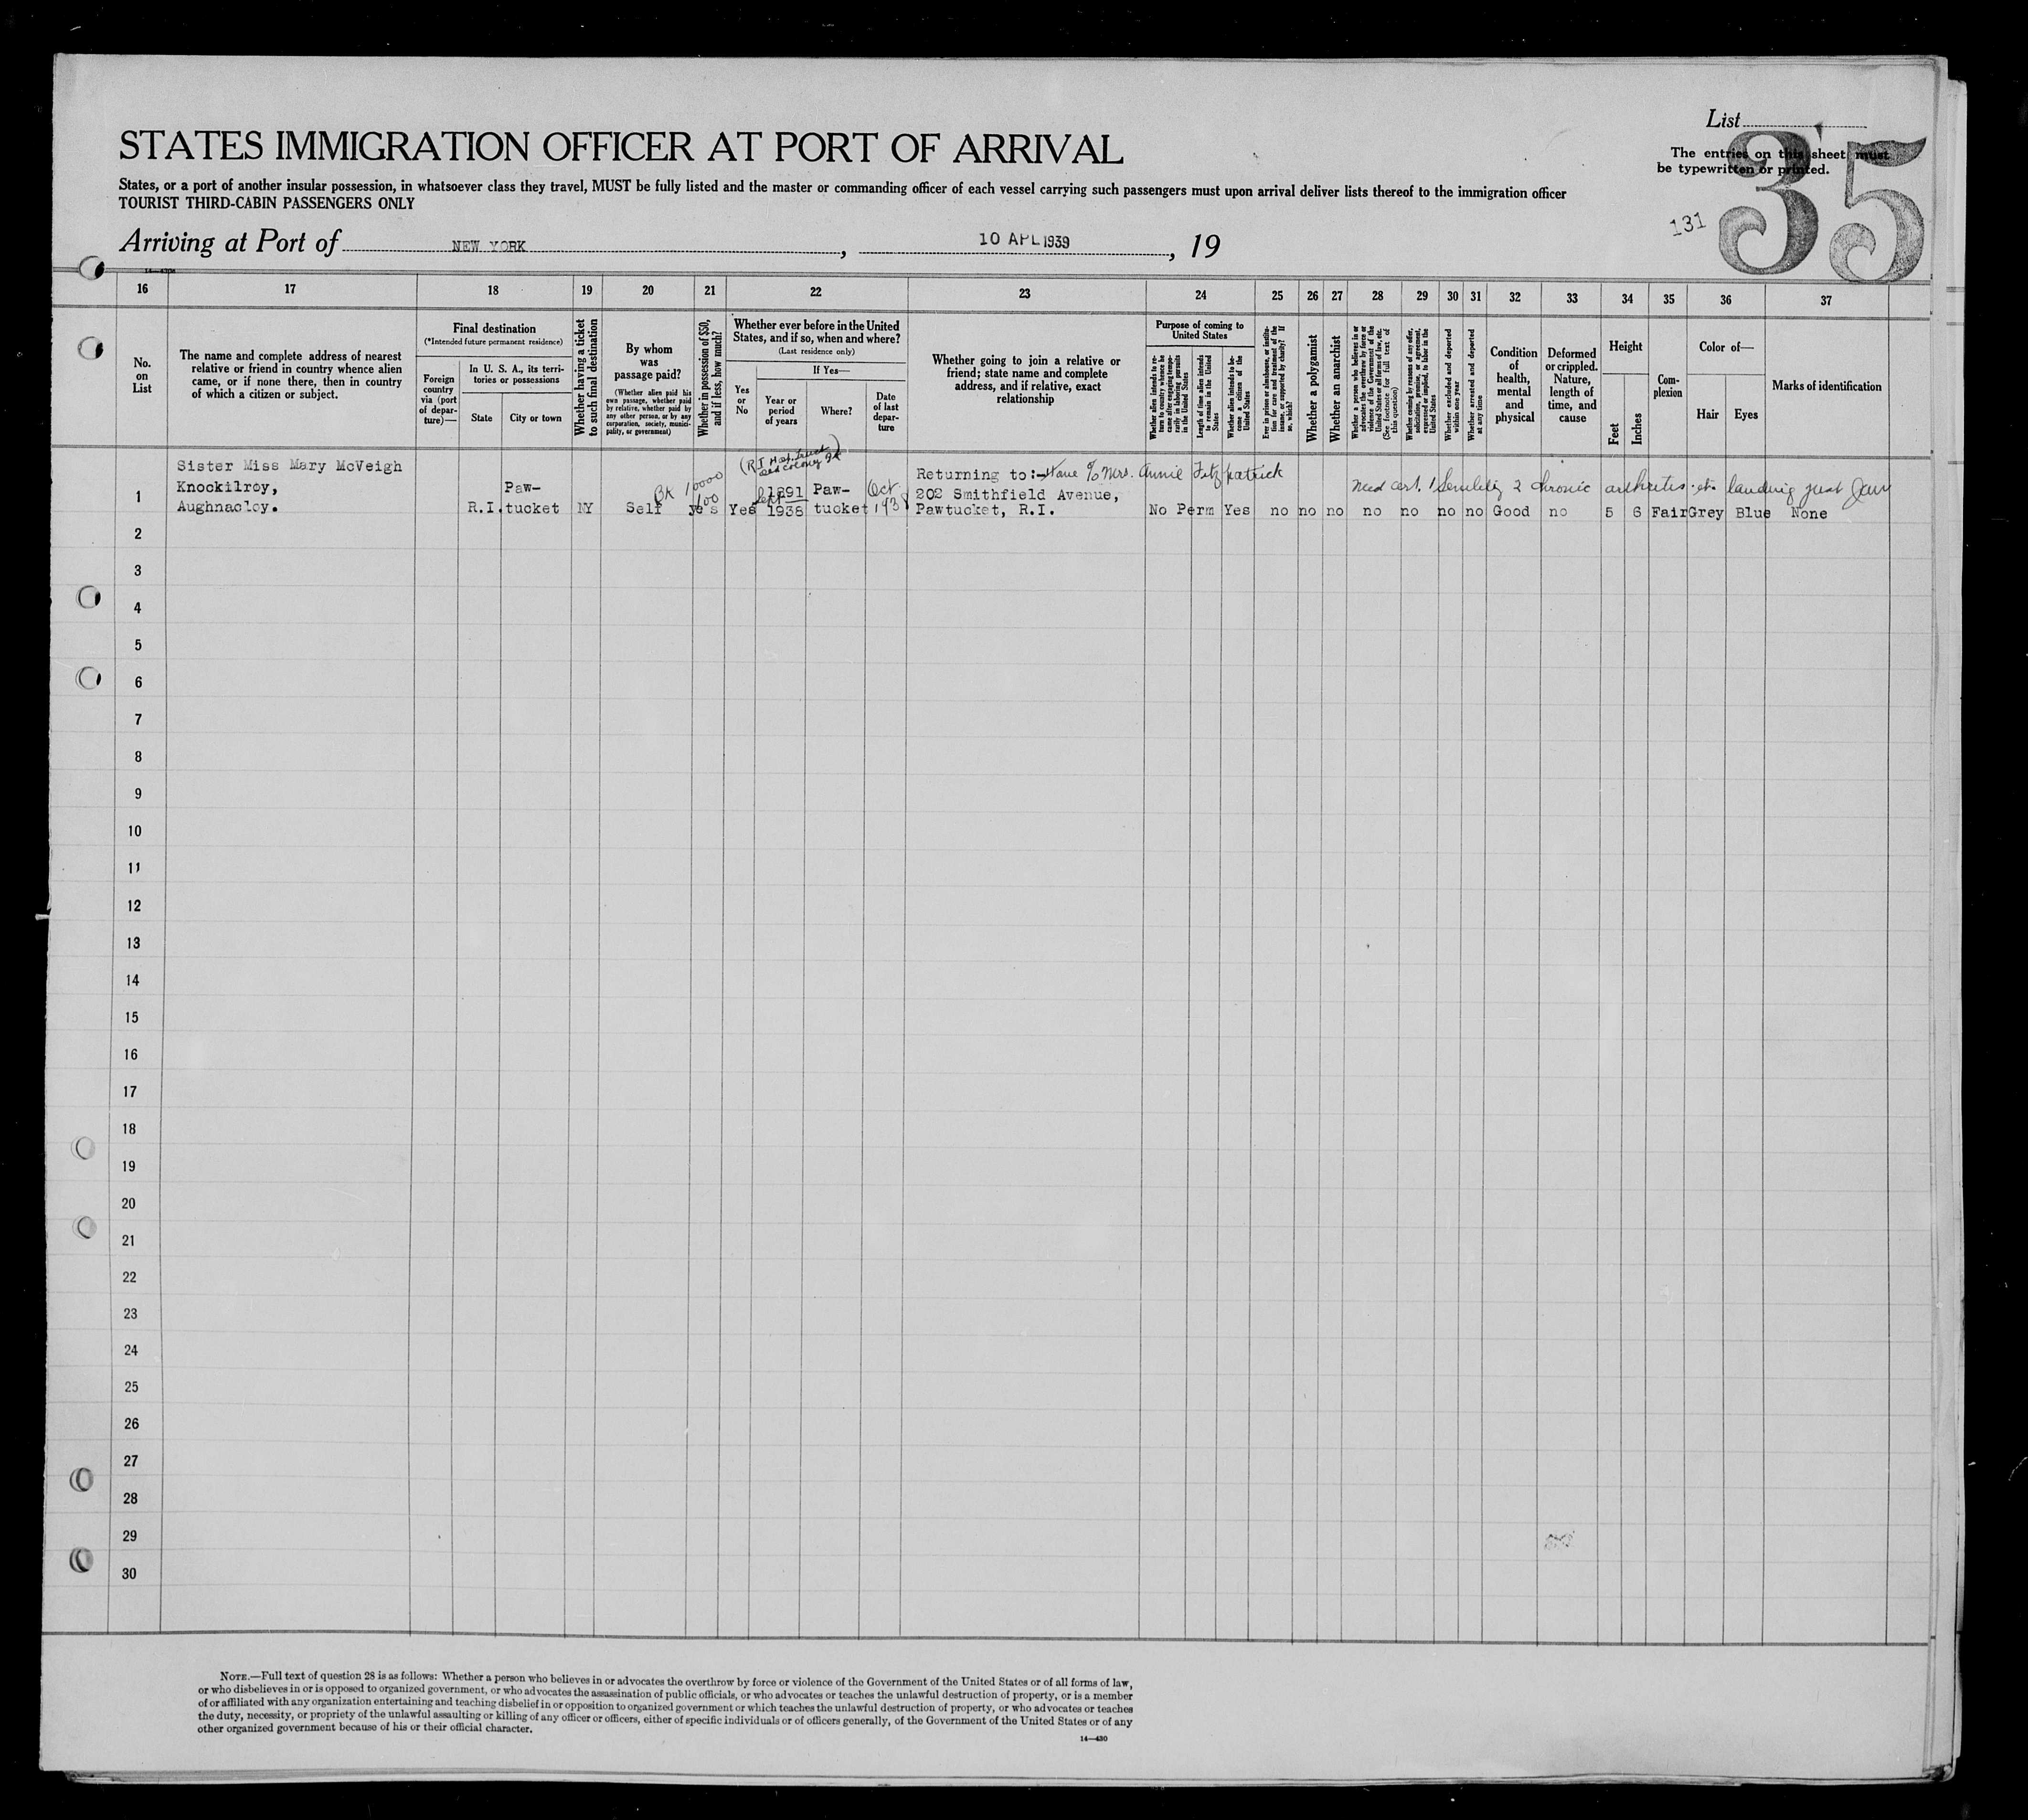 List
STATES IMMIGRATION OFFICER AT PORT OF ARRIVAL
35
The entries on this sheet must
be typewritten or printed.
States, or a port of another insular possession, in whatsoever class they travel, MUST be fully listed and the master or commanding officer of each vessel carrying such passengers must upon arrival deliver lists thereof to the immigration officer
TOURIST THIRD-CABIN PASSENGERS ONLY
131
Arriving at Port of NEW YORK, 10 APL 1939, 19
16 17 18 19 20 21 22 23 24 25 26 27 28 29 30 31 32 33 34 35 36 37
No.
on
List
The name and complete address of nearest
relative or friend in country whence alien
came, or if none there, then in country
of which a citizen or subject.
Final destination
(*Intended future permanent residence)
Foreign
country
via (port
of depar-
ture)—
In U. S. A., its terri-
tories or possessions
State
City or town
Whether having a ticket
to such final destination
By whom
was
passage paid?
(Whether alien paid his
own passage, whether paid
by relative, whether paid by
any other person, or by any
corporation, society, munici-
pality, or government)
Whether in possession of $50,
and if less, how much?
Whether ever before in the United
States, and if so, when and where?
(Last residence only)
Yes
or
No
If Yes—
Year or
period
of years
Where?
Date
of last
depar-
ture
Whether going to join a relative or
friend; state name and complete
address, and if relative, exact
relationship
Purpose of coming to
United States
Whether alien intends to re-
turn to country whence he
came after engaging tempo-
rarily in laboring pursuits
in the United States
Length of time alien intends
to remain in the United
States
Whether alien intends to be-
come a citizen of the
United States
Ever in prison or almshouse, or institu-
tion for care and treatment of the
insane, or supported by charity? If
so, which?
Whether a polygamist
Whether an anarchist
Whether a person who believes in or
advocates the overthrow by force or
violence of the Government of the
United States or all forms of law, etc.
(See footnote for full text of
this question)
Whether coming by reasons of any offer,
solicitation, promise, or agreement,
expressed or implied, to labor in the
United States
Whether excluded and deported
within one year
Whether arrested and deported
at any time
Condition
of
health,
mental
and
physical
Deformed
or crippled.
Nature,
length of
time, and
cause
Height
Feet
Inches
Com-
plexion
Color of—
Hair
Eyes
Marks of identification
Sister Miss Mary McVeigh
Knockilroy,
Aughnacloy.
R.I.
Paw-
tucket
NY
Self
BK 10000
100
yes
Yes
Sept 1891
1938
Paw-
tucket
Oct
193
Returning to: Home c/o Mrs. Annie Fitzpatrick
202 Smithfield Avenue,
Pawtucket, R.I.
Med cert. 1 Senility 2 chronic arthritis
No Perm Yes no no no no no no no Good no 5 6 Fair Grey Blue None
1
2
3
4
5
6
7
8
9
10
11
12
13
14
15
16
17
18
19
20
21
22
23
24
25
26
27
28
29
30
NOTE.—Full text of question 28 is as follows: Whether a person who believes in or advocates the overthrow by force or violence of the Government of the United States or of all forms of law,
or who disbelieves in or is opposed to organized government, or who advocates the assassination of public officials, or who advocates or teaches the unlawful destruction of property, or is a member
of or affiliated with any organization entertaining and teaching disbelief in or opposition to organized government or which teaches the unlawful destruction of property, or who advocates or teaches
the duty, necessity, or propriety of the unlawful assaulting or killing of any officer or officers, either of specific individuals or of officers generally, of the Government of the United States or of any
other organized government because of his or their official character.
14—430